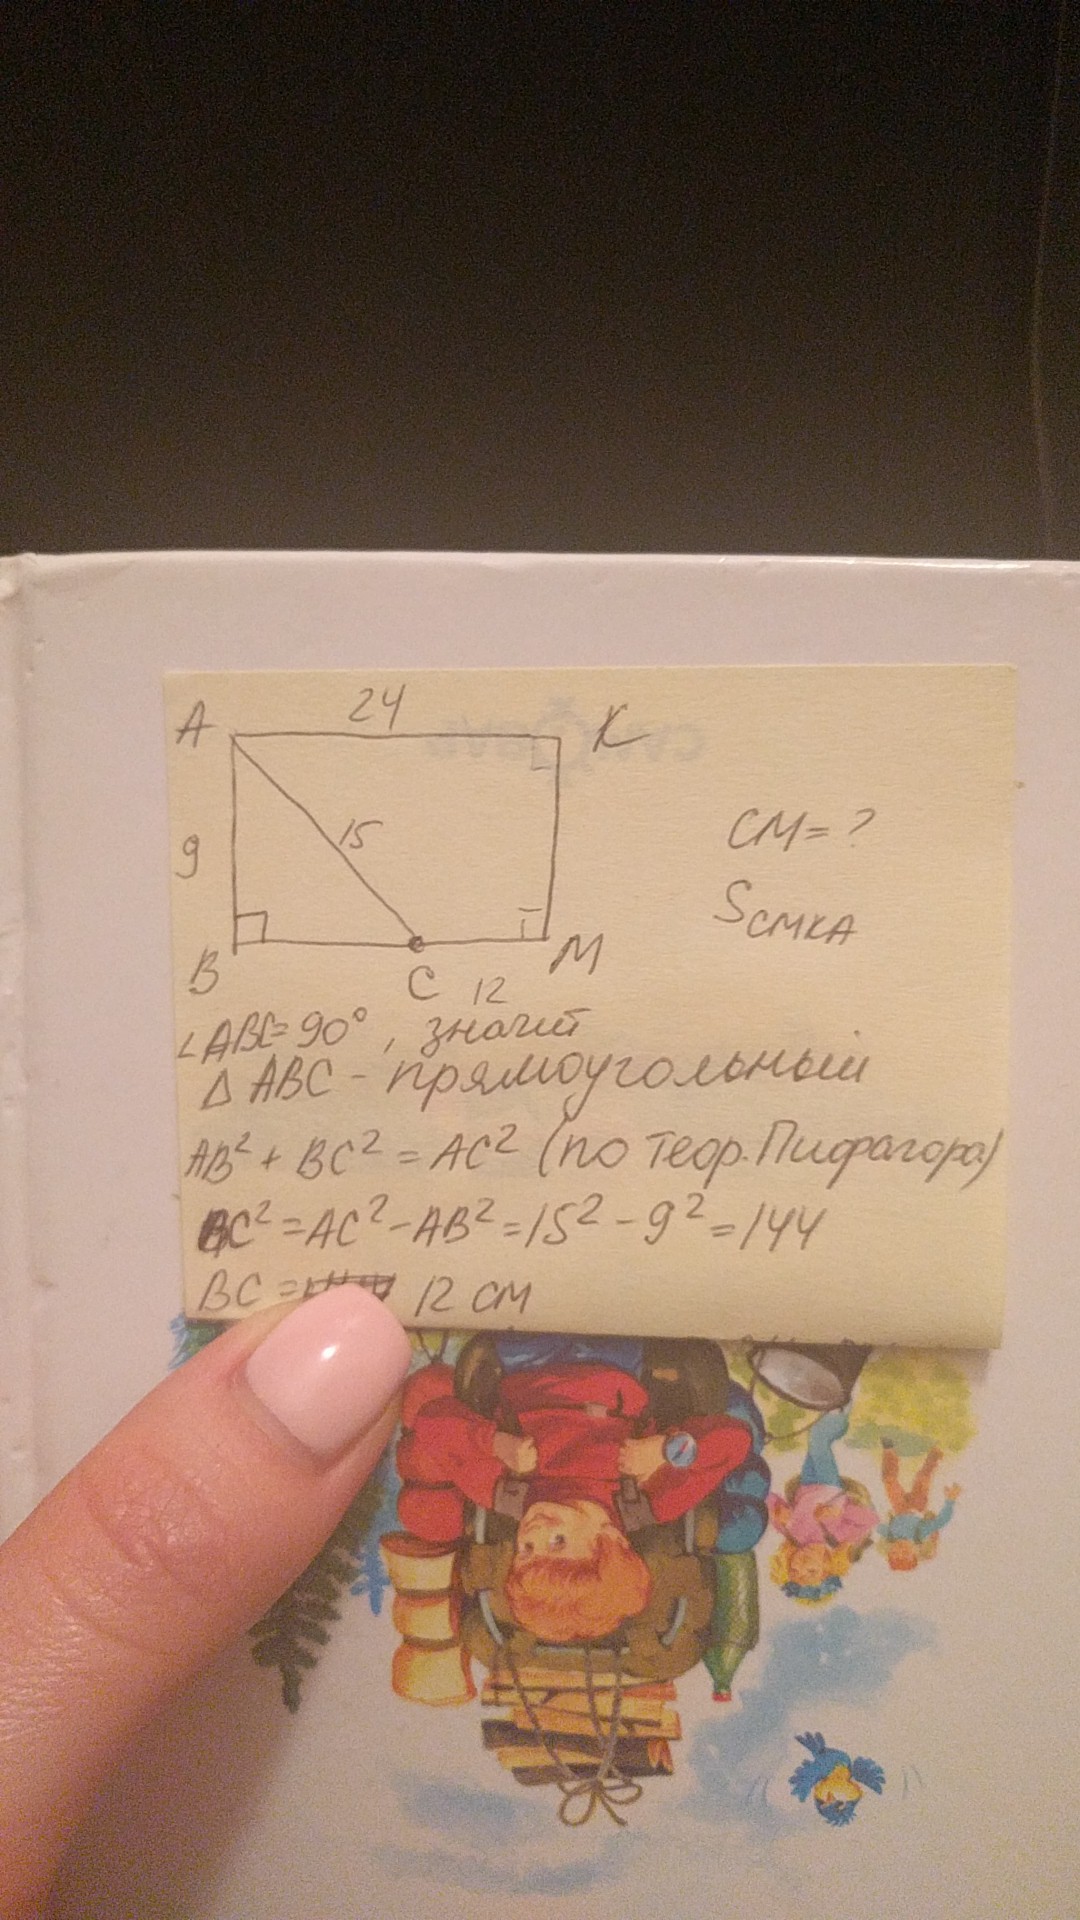 24
A K
9 15
CM = ?
S CMKA
B C 12 M
∠ABC = 90°, значит
Δ ABC - прямоугольный
AB² + BC² = AC² (по теор. Пифагора)
BC² = AC² - AB² = 15² - 9² = 144
BC = 12 см